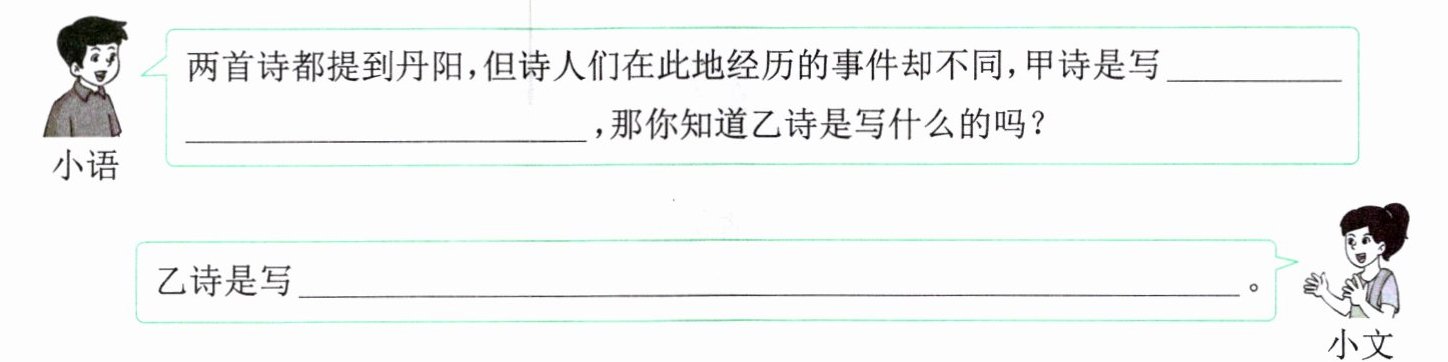 两首诗都提到丹阳,但诗人们在此地经历的事件却不同,甲诗是写__________
______________________,那你知道乙诗是写什么的吗?
小语
乙诗是写____________________________________________________。
小文